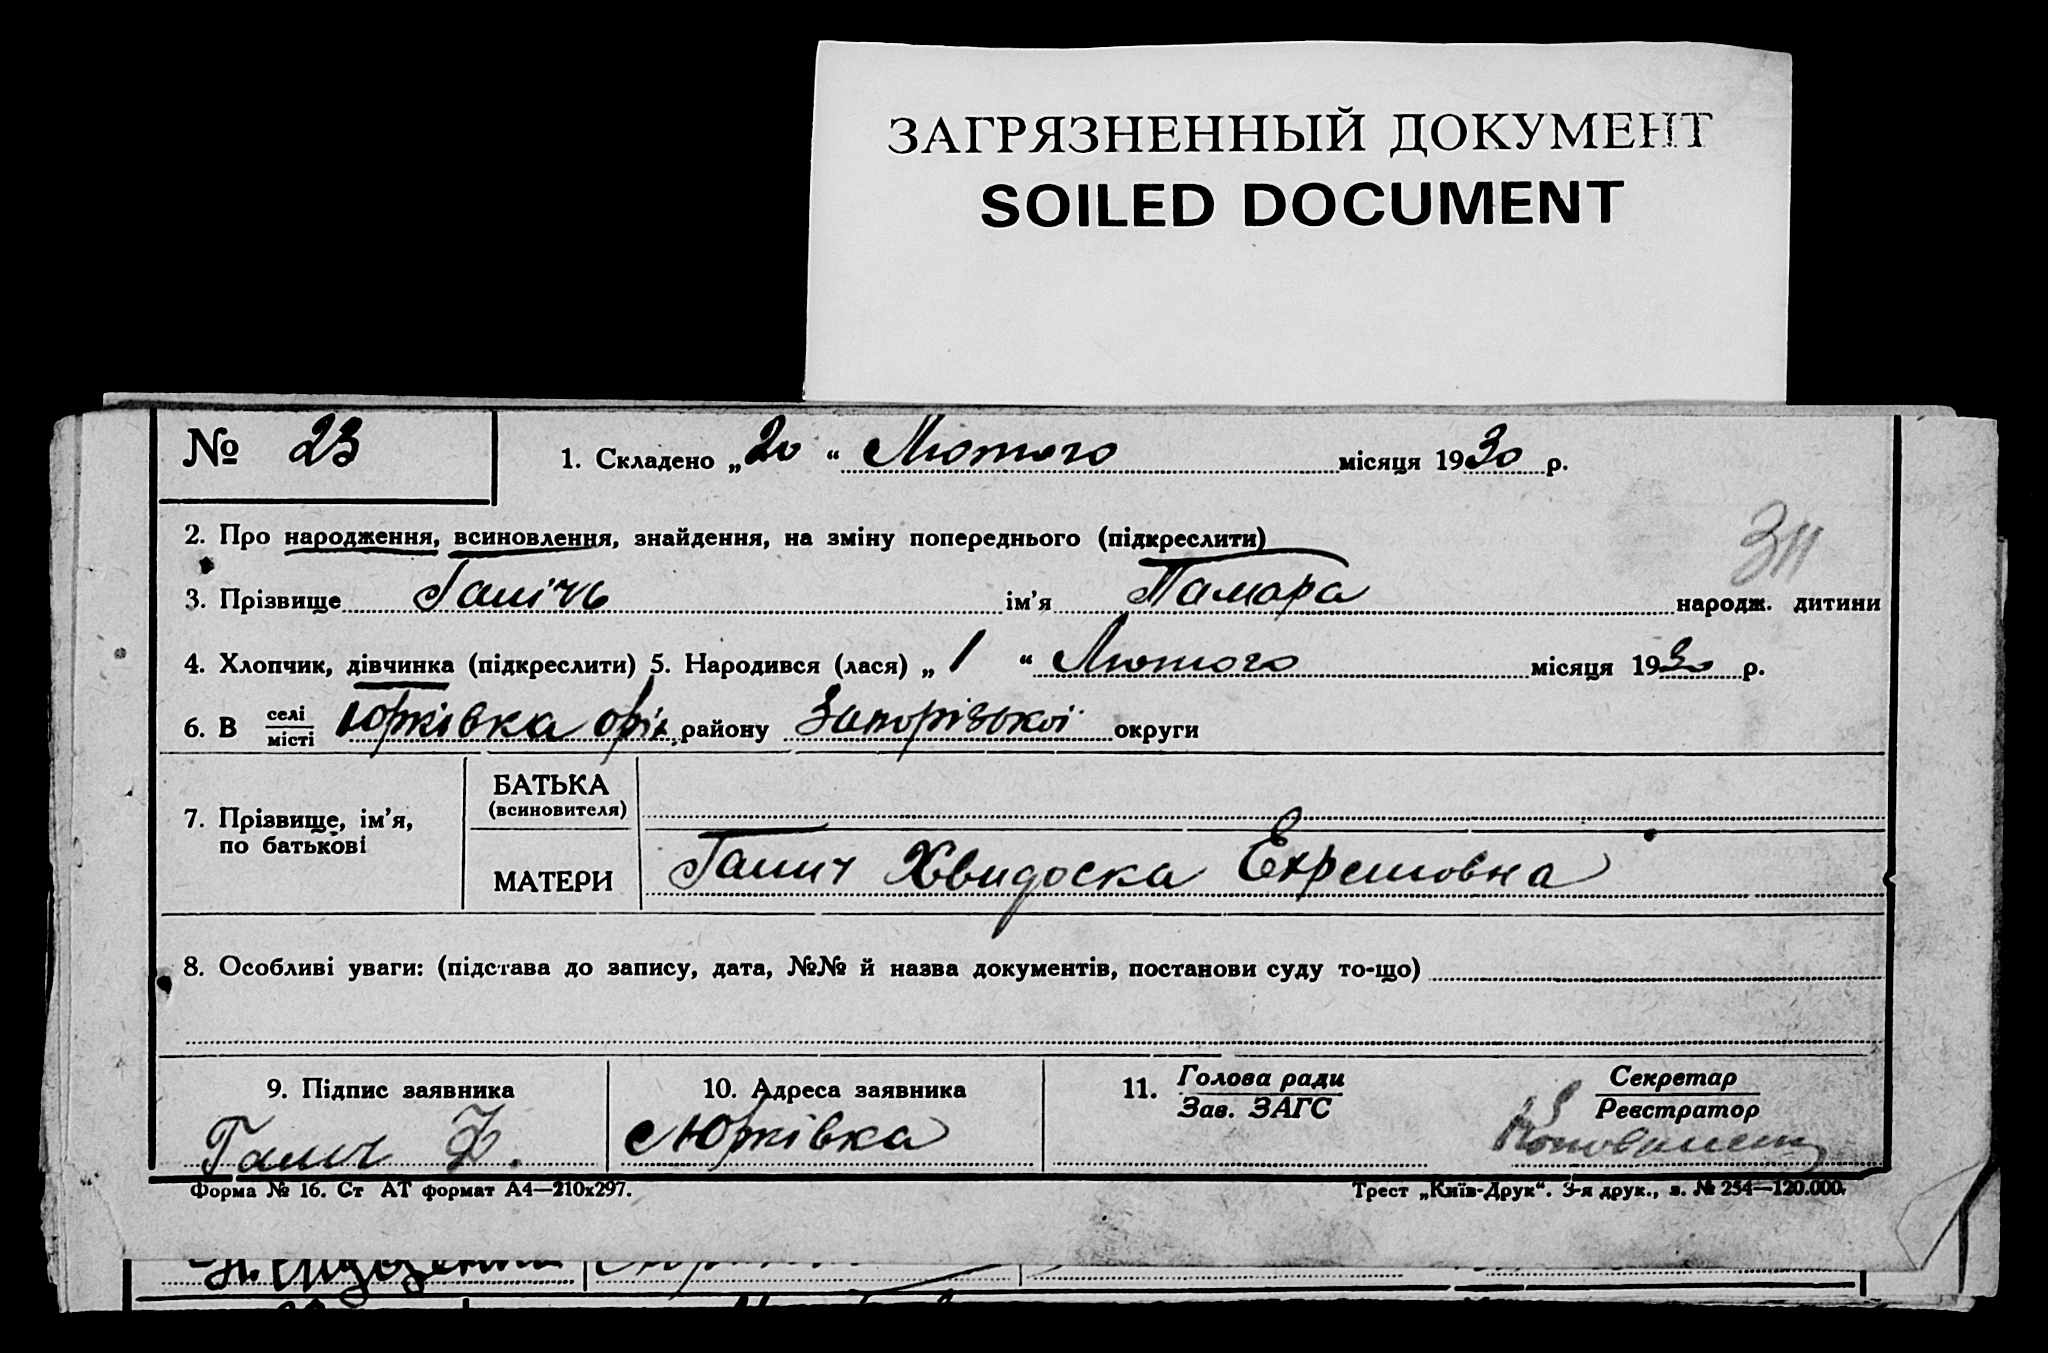 ЗАГРЯЗНЕННЫЙ ДОКУМЕНТ
SOILED DOCUMENT
№ 23
1. Складено „20“ Лютого місяця 1930 р.
2. Про народження, всиновлення, знайдення, на зміну попереднього (підкреслити)
311
3. Прізвище Галічь ім’я Тамара народж. дитини
4. Хлопчик, дівчинка (підкреслити) 5. Народився (лася) „1“ Лютого місяця 1930 р.
6. В селі місті Юрківка оріх. району Запорізької округи
7. Прізвище, ім’я, по батькові
БАТЬКА
(всиновителя)
МАТЕРИ Галич Хвидоска Ехремовна
8. Особливі уваги: (підстава до запису, дата, №№ й назва документів, постанови суду то-що)
9. Підпис заявника
Галич Ф.
10. Адреса заявника
с Юрківка
11. Голова ради
Зав. ЗАГС
Секретар
Реєстратор
Форма № 16. Ст АТ формат А4—210х297.
Трест „Київ-Друк“. 3-я друк., з. № 254—120.000.